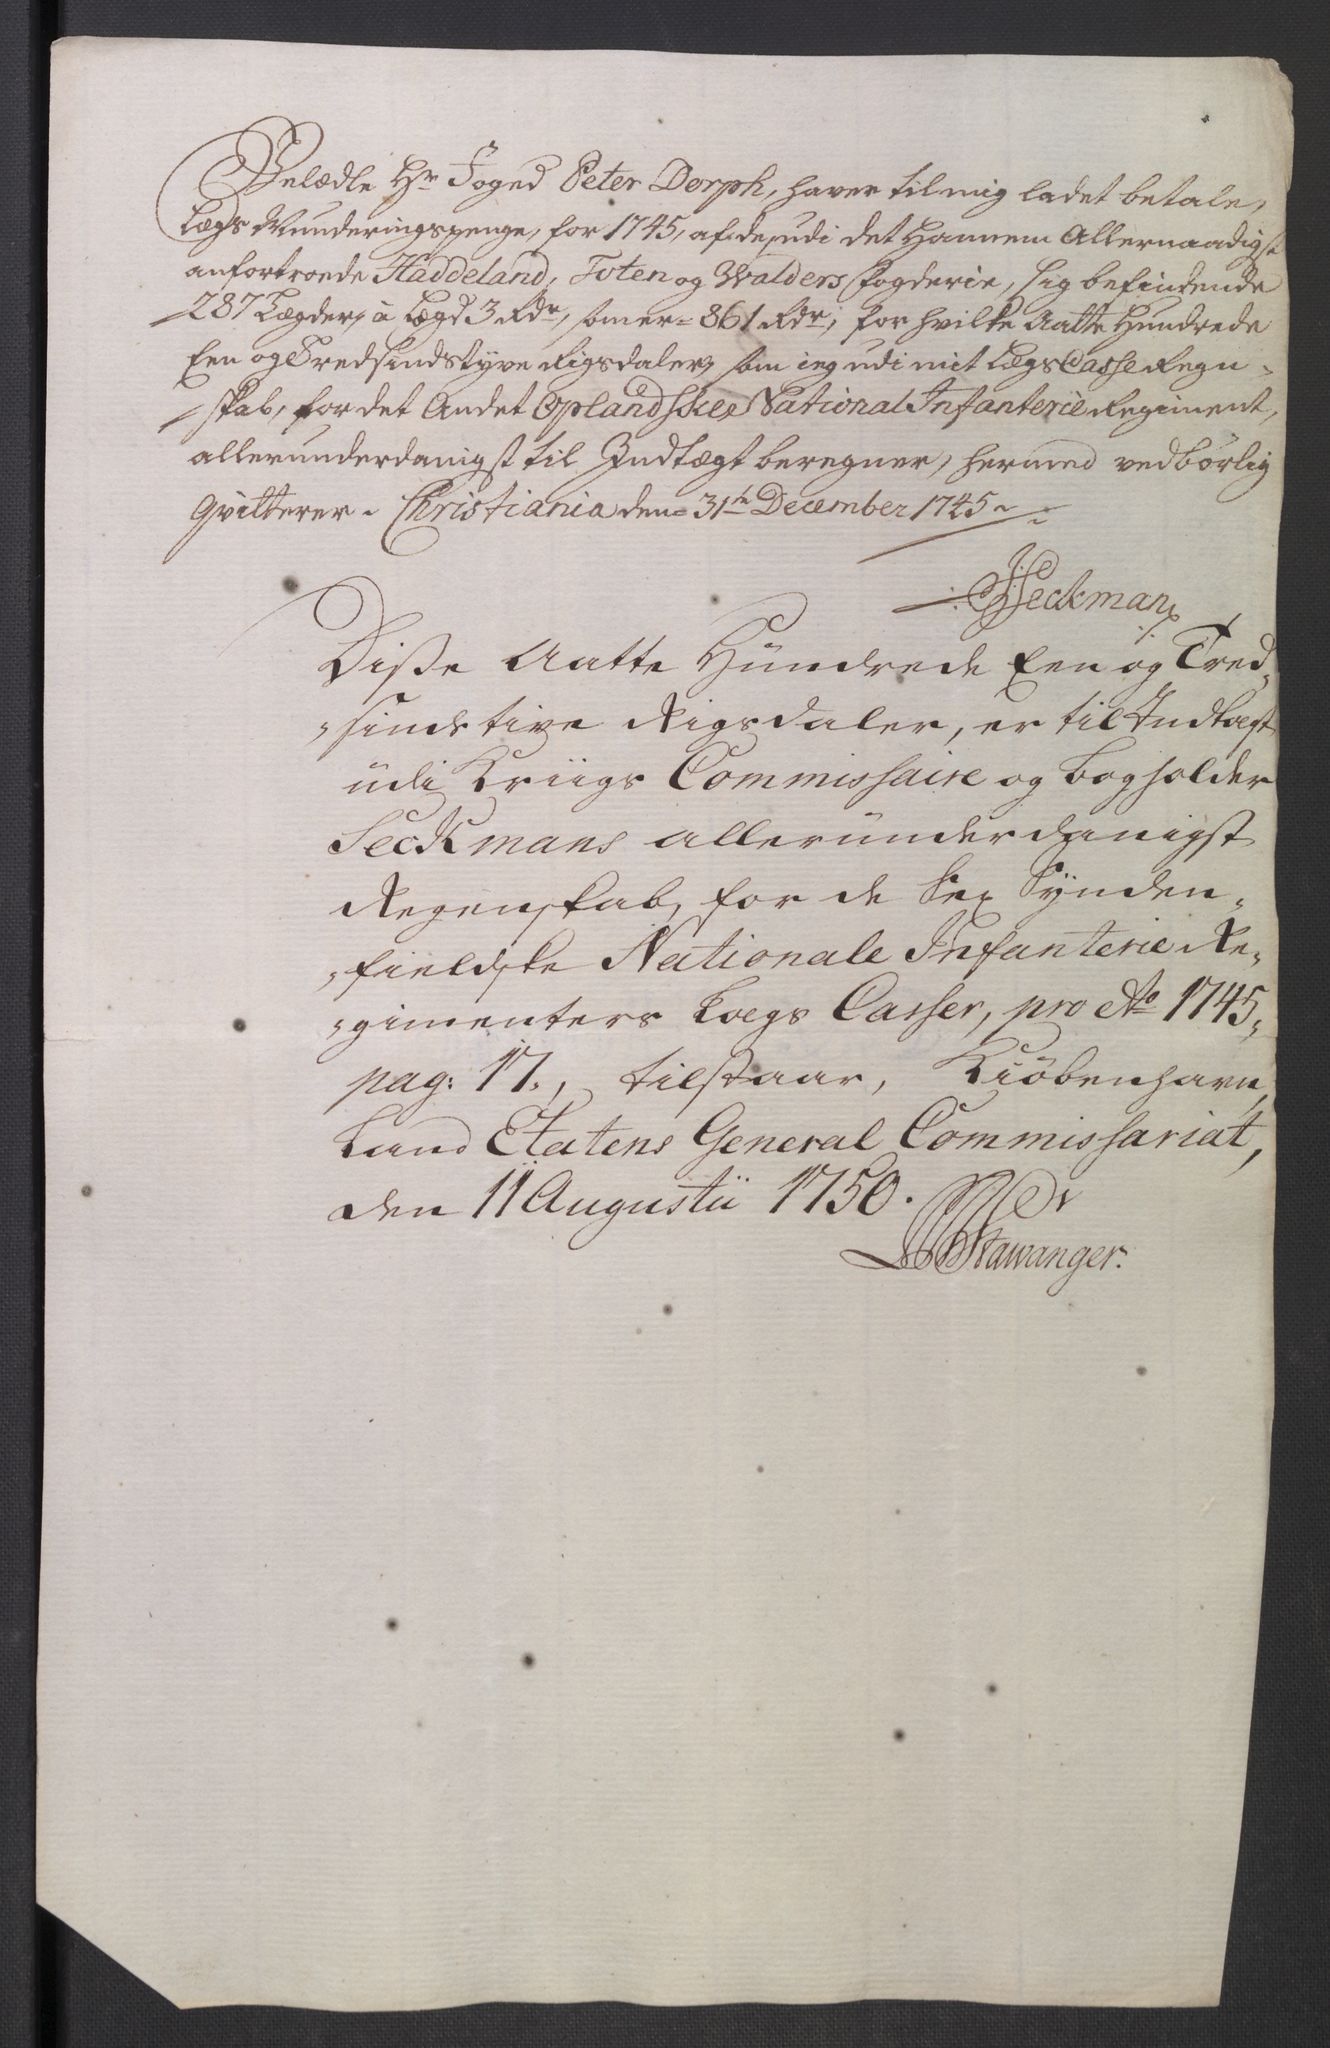 Velædle Hr Foged Peter Dorph, haver til mig ladet betale,
Lægs Munderingspenge, for 1745, af de, udi det Hannem Allernaadigst
anfortroede Haddeland, Toten og Walders Fogderie, sig befindende
287 Lægder, à Lægd 3 Rdr, som er = 861 Rdr, for hvilke Aatte Hundrede
Een og Tredsindstyve Rigsdaler, som ieg udi mit Lægs Casse Regn-
skab, for det Andet Oplandske National Infanterie Regiment,
allerunderdanigst til Indtægt beregner, hermed vedbørlig
Qvitterer. Christiania den = 31te December 1745
Seckman
Disse Aatte Hundrede Een og Tred-
sindstive Rigsdaler, er til Indtægt
udi Kriigs Commissaire og bogholder
Seckmans allerunderdanigst
Regenskab, for de Sex Synden-
fieldske Nationale Infanterie Re-
gimenters Lægs Casser, pro Ao 1745,
pag: 17., tilstaar, Kiöbenhavn,
Land Etatens General Commissariat,
den 11 Augustii 1750.
Stawanger.